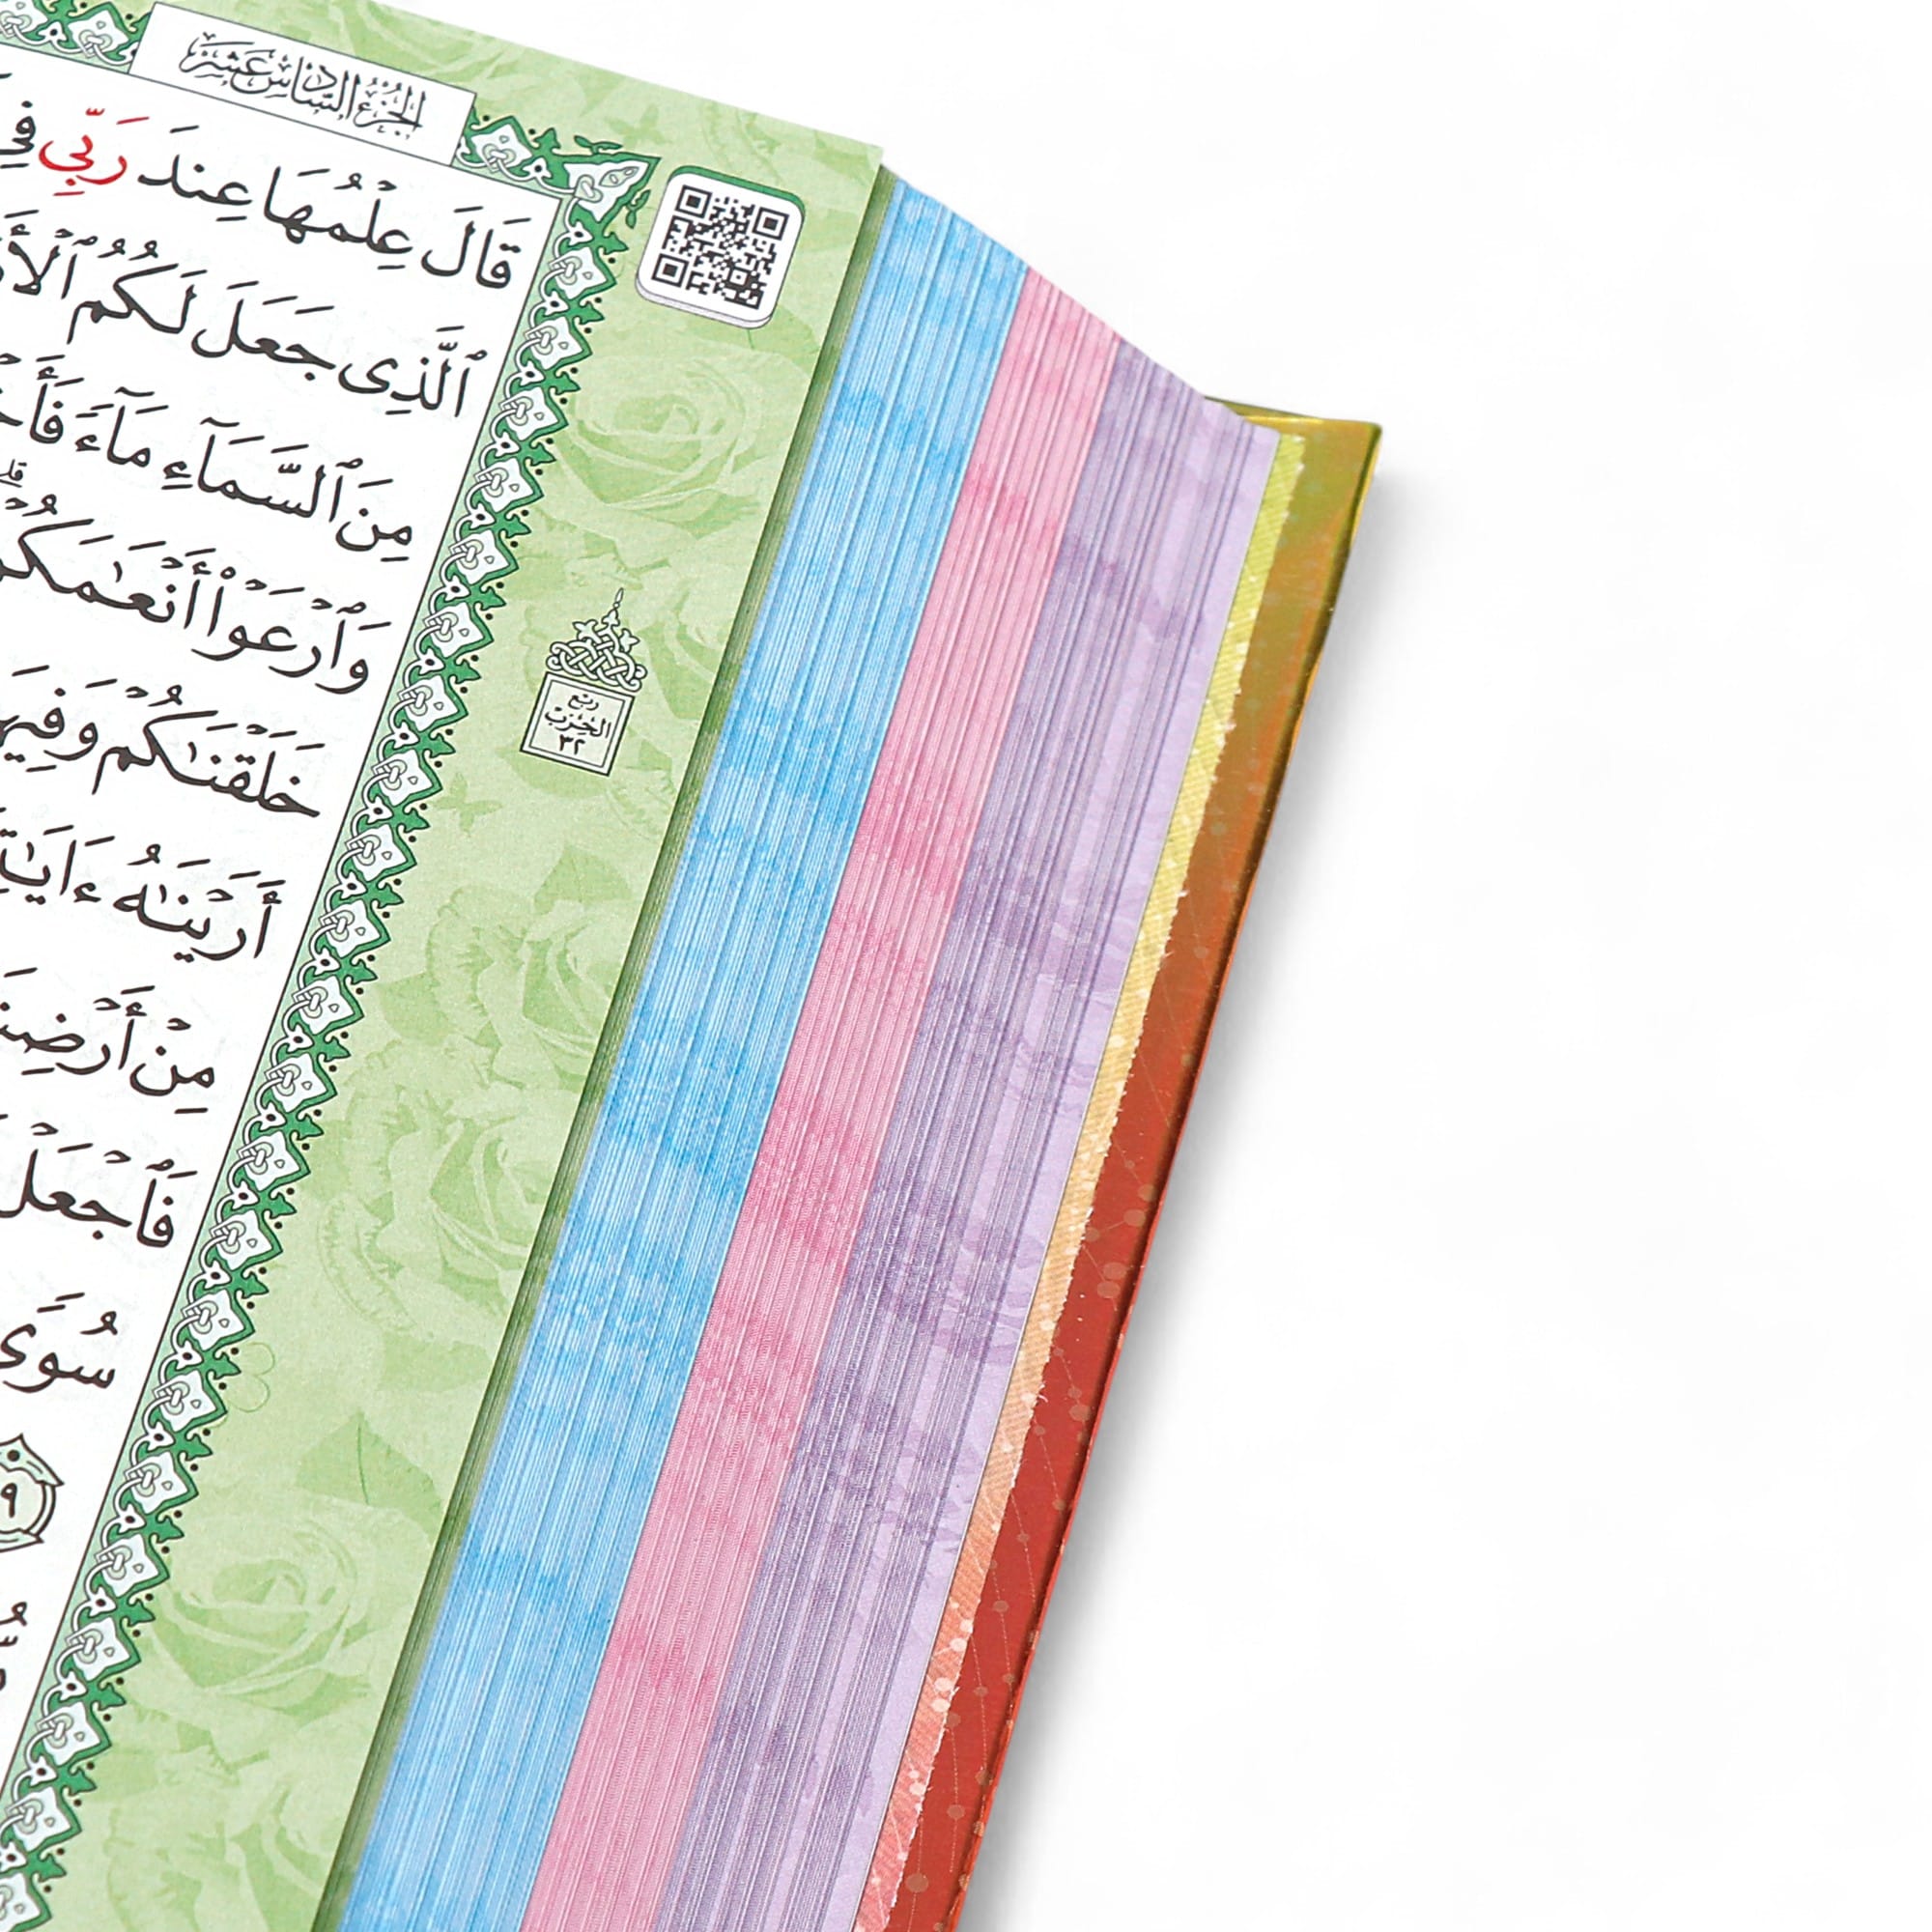 الجزء السادس عشر
قَالَ عِلْمُهَا عِندَ رَبِّي فِي
ٱلَّذِى جَعَلَ لَكُمُ ٱلْأَ
مِنَ ٱلسَّمَآءِ مَآءً فَأَخْ
وَٱرْعَوْا۟ أَنْعَٰمَكُمْ
خَلَقْنَٰكُمْ وَفِيهَا
أَرَيْنَٰهُ ءَايَٰتِ
مِنْ أَرْضِنَ
فَٱجْعَلْ
سُوًى
ربع
الحزب
٣٢